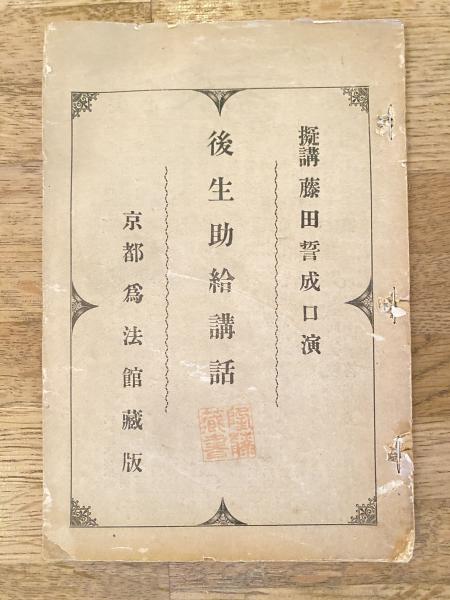 擬講藤田誓成口演
後生助給講話
京都爲法館藏版